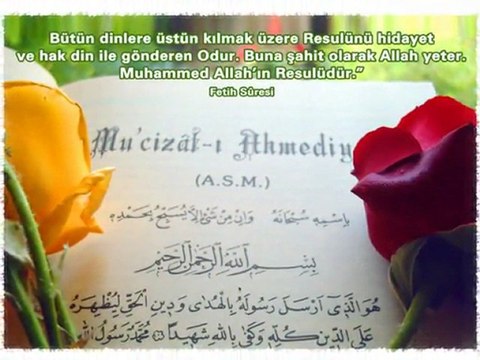 Bütün dinlere üstün kılmak üzere Resulünü hidayet
ve hak din ile gönderen Odur. Buna şahit olarak Allah yeter.
Muhammed Allah'ın Resulüdür.”
Fetih Sûresi
Mu'cizât-ı Ahmediy
(A.S.M.)
بِاسْمِهِ سُبْحَانَهُ وَاِنْ مِنْ شَىْءٍ اِلَّا يُسَبِّحُ بِحَمْدِهِ
بِسْمِ اللّٰهِ الرَّحْمٰنِ الرَّحِيمِ
هُوَ الَّذِى اَرْسَلَ رَسُولَهُ بِالْهُدٰى وَ دِينِ الْحَقِّ لِيُظْهِرَهُ
عَلَى الدِّينِ كُلِّهِ وَكَفٰى بِاللّٰهِ شَهِيدًا مُحَمَّدٌ رَسُولُ اللّٰهِ